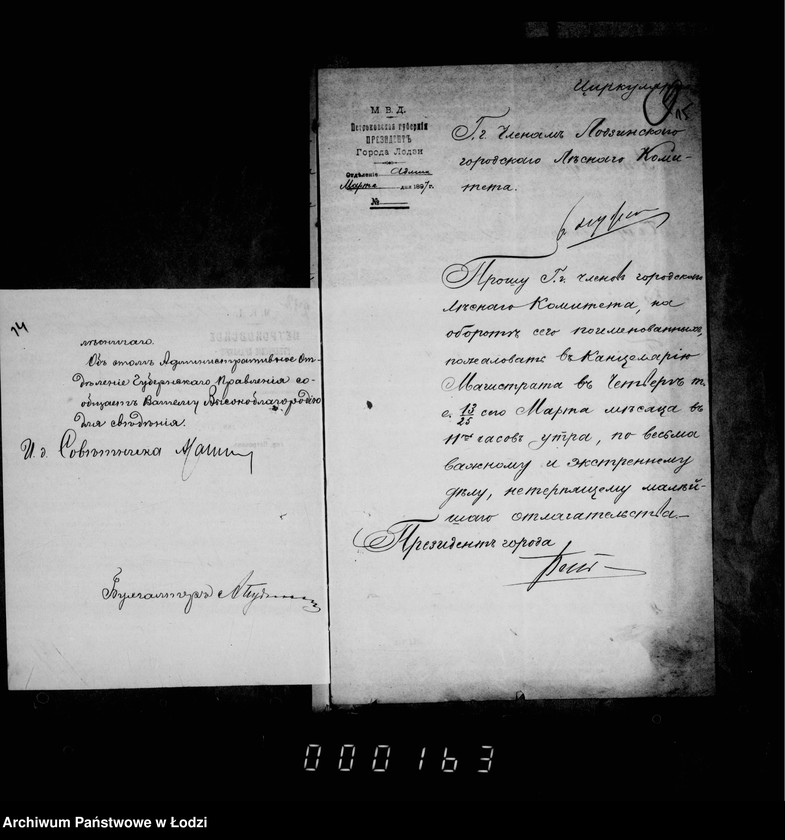 14
мѣстнаго.
Объ этомъ Административное От-
дѣленіе Губернскаго Правленія со-
общаетъ Вашему Высокоблагородію
для свѣдѣнія.
И. д. Совѣтника
Бухгалтеръ
Циркулярно
15
М. В. Д.
Петроковская губернія
ПРЕЗИДЕНТЪ
Города Лодзи
Отдѣленіе Админ
Марта дня 1897 г.
№
Гг. Членамъ Лодзинского
городского Лѣснаго Коми-
тета.
Прошу Гг. членовъ городского
лѣснаго Комитета, на
оборотѣ сего поименованныхъ,
пожаловать въ Канцелярію
Магистрата въ Четвергъ т.
е. 13/25 сего Марта мѣсяца въ
11 часовъ утра, по весьма
важному и экстренному
дѣлу, нетерпящему малѣй-
шаго отлагательства.
Президентъ города
000163
Archiwum Państwowe w Łodzi